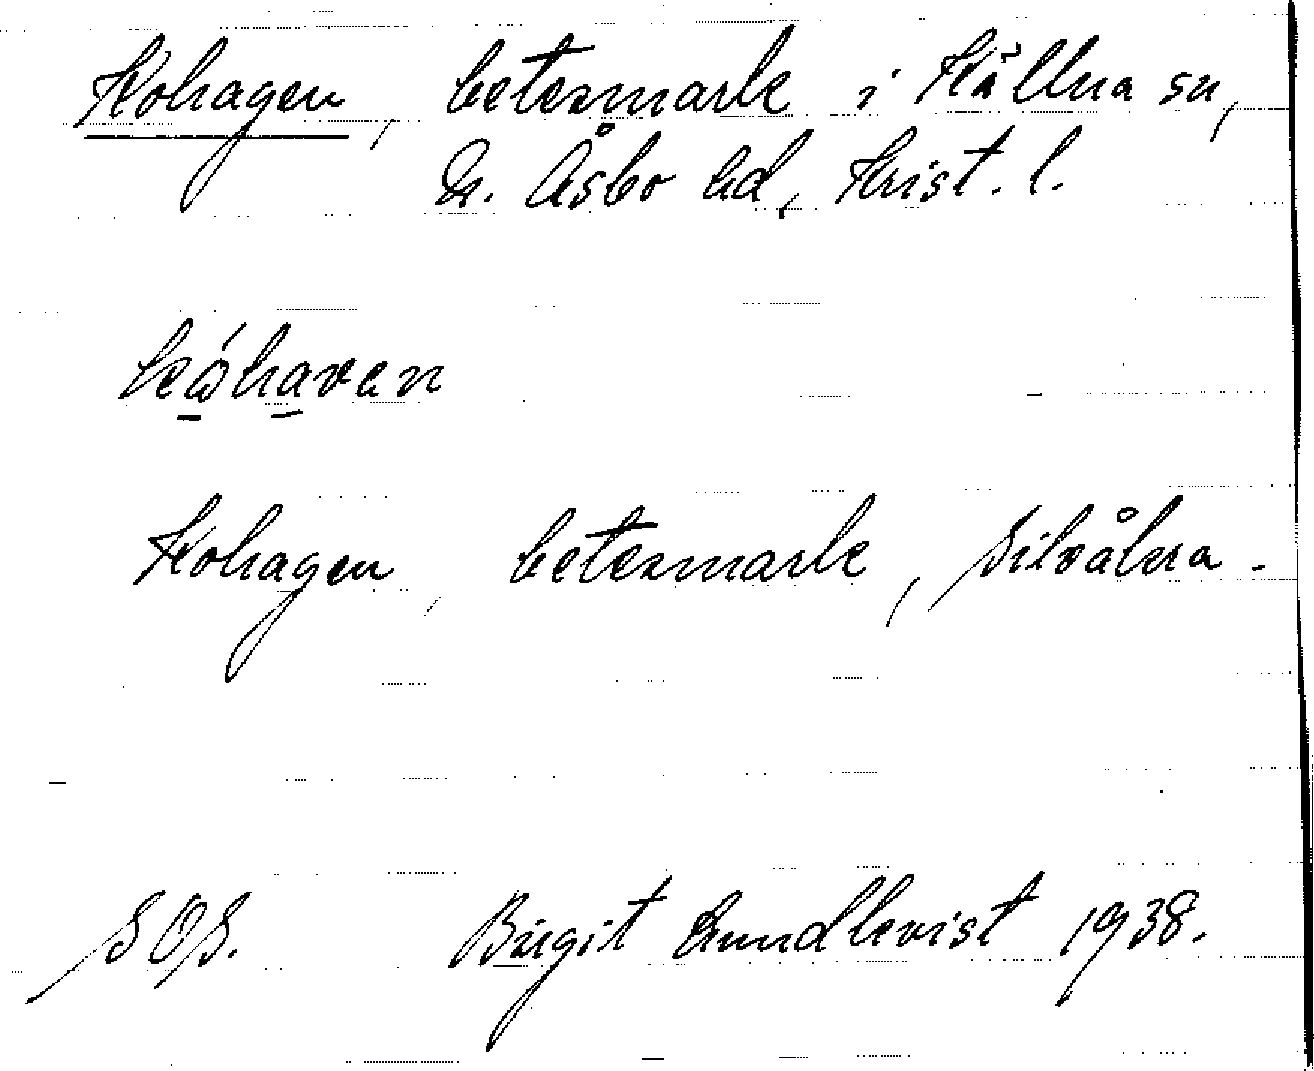 Kohagen, betesmark i Källna sn,
N. Åsbo hd, Krist. l.
kǿhaven
Kohagen, betesmark, Silvåkra.
SOS. Birgit Lundkvist 1938.